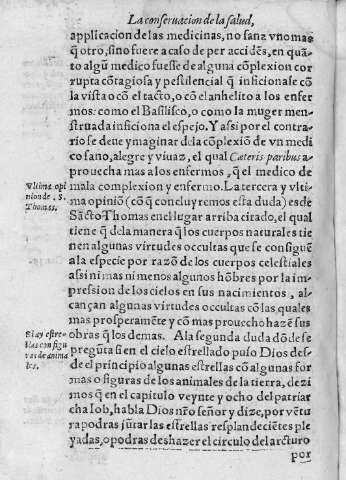 La conseruacion de la salud,
applicacion de las medicinas, no sana vno mas
q̃ otro, sino fuere a caso de per acci dẽs, en quã
to algũ medico fuesse de alguna cõplexion cor
rupta cõtagiosa y pestilencial q̃ inficionasse cõ
la vista o cõ el tacto, o cõ el anhelito a los enfer
mos: como el Basilisco, o como la muger men-
struada inficiona el espejo. Y assi por el contra-
rio se deue ymaginar de la cõplexiõ de vn medi
co sano, alegre y viuaz, el qual Cæteris paribus a-
prouecha mas a los enfermos, q̃ el medico de
Vltima opi
nion de. S.
Thomas.
mala complexion y enfermo. La tercera y vlti-
ma opiniõ (cõ q̃ concluyremos esta duda) es de
Sãcto Thomas en el lugar arriba citado, el qual
tiene q̃ de la manera q̃ los cuerpos naturales tie
nen algunas virtudes occultas que se consiguẽ
a la especie por razõ de los cuerpos celestiales
assi ni mas ni menos algunos hõbres por la im-
pression de los cielos en sus nacimientos, al-
cançan algunas virtudes occultas cõ las quales
mas prosperamẽte y cõ mas prouecho hazẽ sus
Si ay estre-
llas con figu
ras de anima
les.
obras q̃ los demas. A la segunda duda dõde se
pregũta si en el cielo estrellado puso Dios des-
de el principio algunas estrellas cõ algunas for
mas o figuras de los animales de la tierra, dezi
mos q̃ en el capitulo veynte y ocho del patriar
cha Iob, habla Dios nr̃o señor y dize, por vẽtu
ra podras jũtar las estrellas resplandeciẽtes ple
yadas, o podras deshazer el circulo del arcturo
por